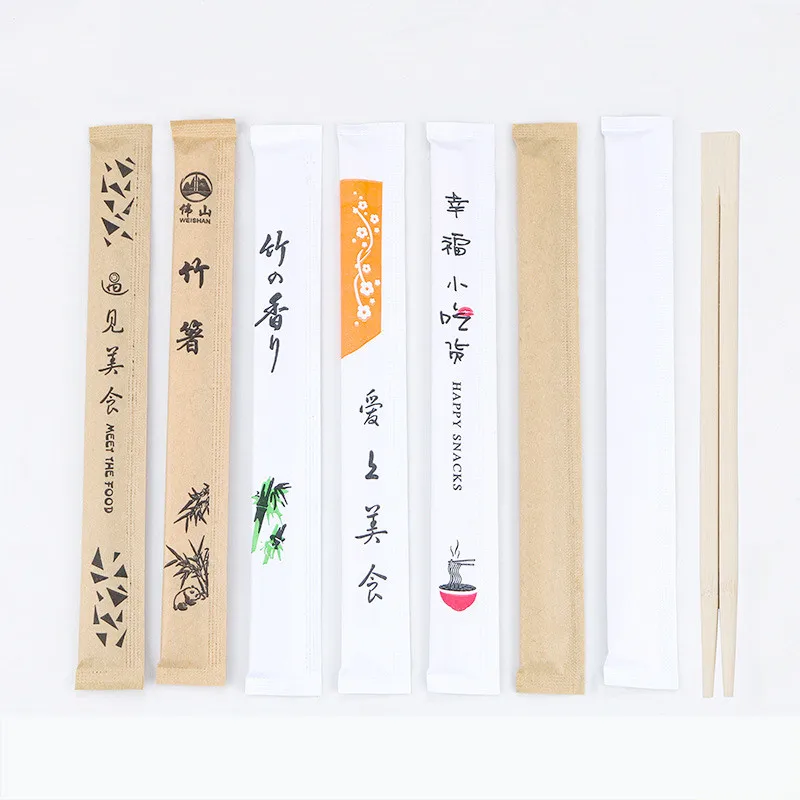 遇见美食
MEET THE FOOD
伟山
WEISHAN
竹箸
竹の香り
爱上美食
幸福小吃货
HAPPY SNACKS